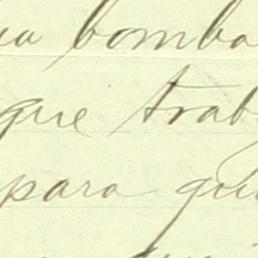 bomba
que trab
para qu